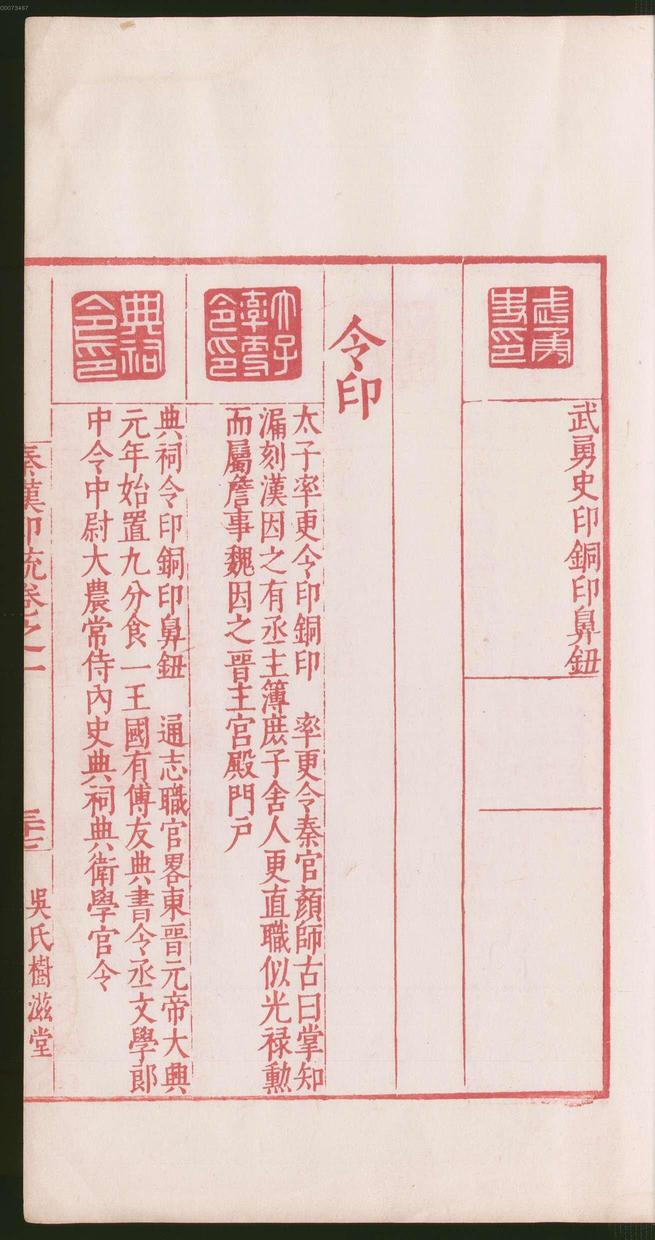 00073467
武勇史印
武勇史印銅印鼻鈕
令印
太子率更令印
太子率更令印銅印　率更令秦官顏師古曰掌知
漏刻漢因之有丞主簿庶子舍人更直職似光祿勳
而屬詹事魏因之晉主宮殿門戶
典祠令印
典祠令印銅印鼻鈕　通志職官畧東晉元帝大興
元年始置九分食一王國有傅友典書令丞文學郎
中令中尉大農常侍內史典祠典衛學官令
秦漢印統卷之一
吳氏樹滋堂